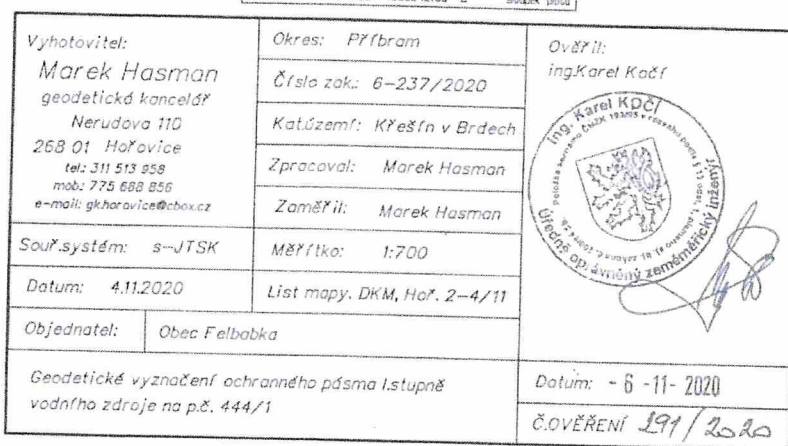 sloupek plotu
Vyhotovitel:
Marek Hasman
geodetická kancelář
Nerudova 110
268 01 Hořovice
tel.: 311 513 958
mob.: 775 688 856
e-mail: gkhorovice@cbox.cz
Souř.systém: s-JTSK
Datum: 4.11.2020
Objednatel: Obec Felbabka
Okres: Příbram
Číslo zak.: 6-237/2020
Kat.území: Křešín v Brdech
Zpracoval: Marek Hasman
Zaměřil: Marek Hasman
Měřítko: 1:700
List mapy. DKM, Hoř. 2-4/11
Ověřil:
ing.Karel Kočí
Ing. Karel Kočí
Úředně oprávněný zeměměřický inženýr
Geodetické vyznačení ochranného pásma I.stupně
vodního zdroje na p.č. 444/1
Datum: - 6 -11- 2020
Č.OVĚŘENÍ 291/2020